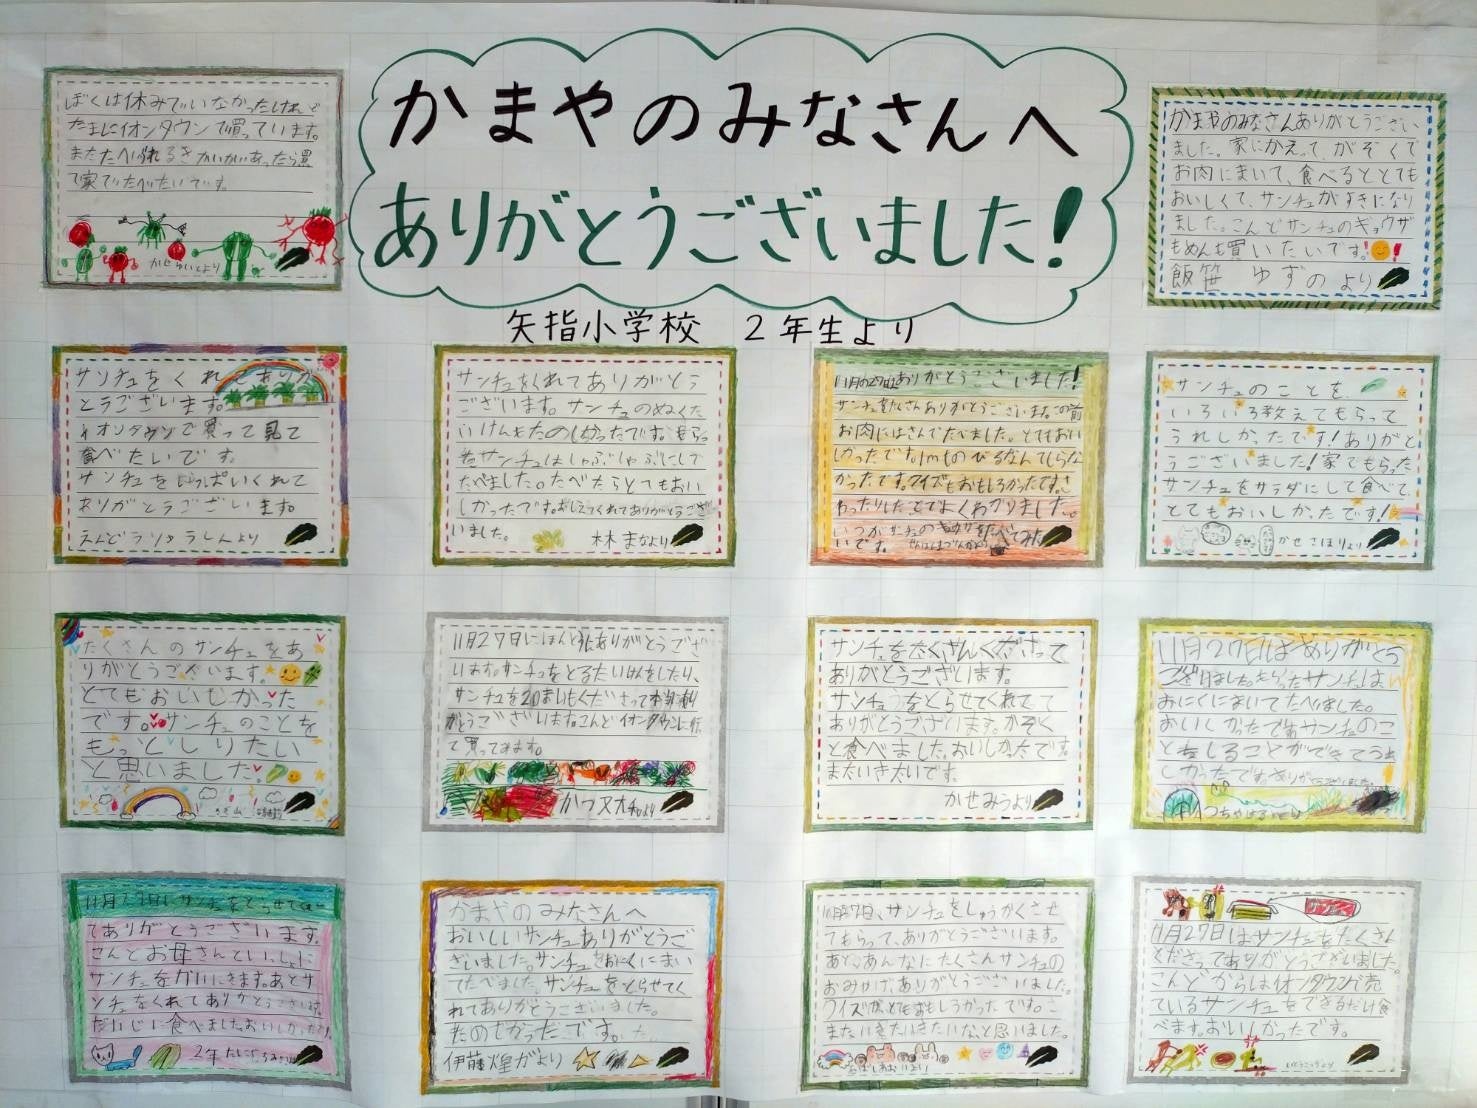 かまやのみなさんへ
ありがとうございました!
矢指小学校 2年生より
ぼくは休みでいなかったけれど
たまにイオンタウンで買っています。
またたべられるき かいがあったら買
て家でたべたいです。
かせらいとより
かまやのみなさんありがとうござい
ました。家にかえって、かぞくで
お肉にまいて、食べるととても
おいしくて、サンチュがすきになり
ました。こんどサンチュのギョウザ
もめんも買いたいです。!
飯笹 ゆずのより
サンチュをくれてありが
とうございます。
イオンタウンで買って見て
食べたいです。
サンチュをいっぱいくれて
ありがとうございます。
サンチュをくれてありがとう
ございます。サンチュのぬくた
いけんもたのしかったです。もらっ
たサンチュはしゃぶしゃぶにして
たべました。たべたらとてもおい
しかったです。おしえてくれてありがとうござ
いました。
林 まなより
11月の27日ありがとうございました!
サンチュをたくさんありがとうございます。この前
お肉にはさんでたべました。とてもおい
しかったです。1mものびるなんてしらな
かったです。クイズもおもしろかったです。さ
わったりしたとてよくわかりました。
いつかサンチュのギョウザを食べてみた
いです。
サンチュのことを
いろいろ教えてもらって
うれしかったです!ありがと
うございました!家でもらった
サンチュをサラダにして食べて、
とてもおいしかったです!
かせ さほりより
たくさんのサンチュをあ
りがとうございます。
とてもおいしかった
です。サンチュのことを
もっとしりたい
と思いました
11月27日にほんとにありがとうござ
います。サンチュをとるたいけんをしたり、
サンチュを20まいもくださって本当にあり
がとうございますこんどイオンタウンに行
って買ってみます。
サンチュをたくさんくださって
ありがとうございます。
サンチュをとらせてくれてて
ありがとうございます。かぞく
と食べました。おいしかったです。
またいきたいです。
かせみつより
11月27日はありがとう
ございました。もらったサンチュは
おにくにまいてたべました。
おいしかったです。サンチュのこ
とをしることができてうれ
しかったです。ありがとうございました。
11月27日にサンチュをとらせてくれ
てありがとうございます。
こんどお母さんといっしょに
サンチュをかいにきます。あとサ
ンチュをくれてありがとうございます。
だいじに食べました。おいしかったです。
かまやのみなさんへ
おいしいサンチュありがとうご
ざいました。サンチュをおにくにまい
てたべました。サンチュをとらせてく
れてありがとうございました。
たのしかったです。
伊藤煌がより
11月27日、サンチュをしゅうかくさせ
てもらって、ありがとうございます。
あと、あんなにたくさんサンチュの
おみやげ、ありがとうございました。
クイズが、とてもおもしろかったです。
またいきたいきたいなと思いました。
11月27日はサンチュをたくさん
くださってありがとうございました。
こんどからはイオンタウンで売
ているサンチュをできるだけ食
べます。おいしかったです。